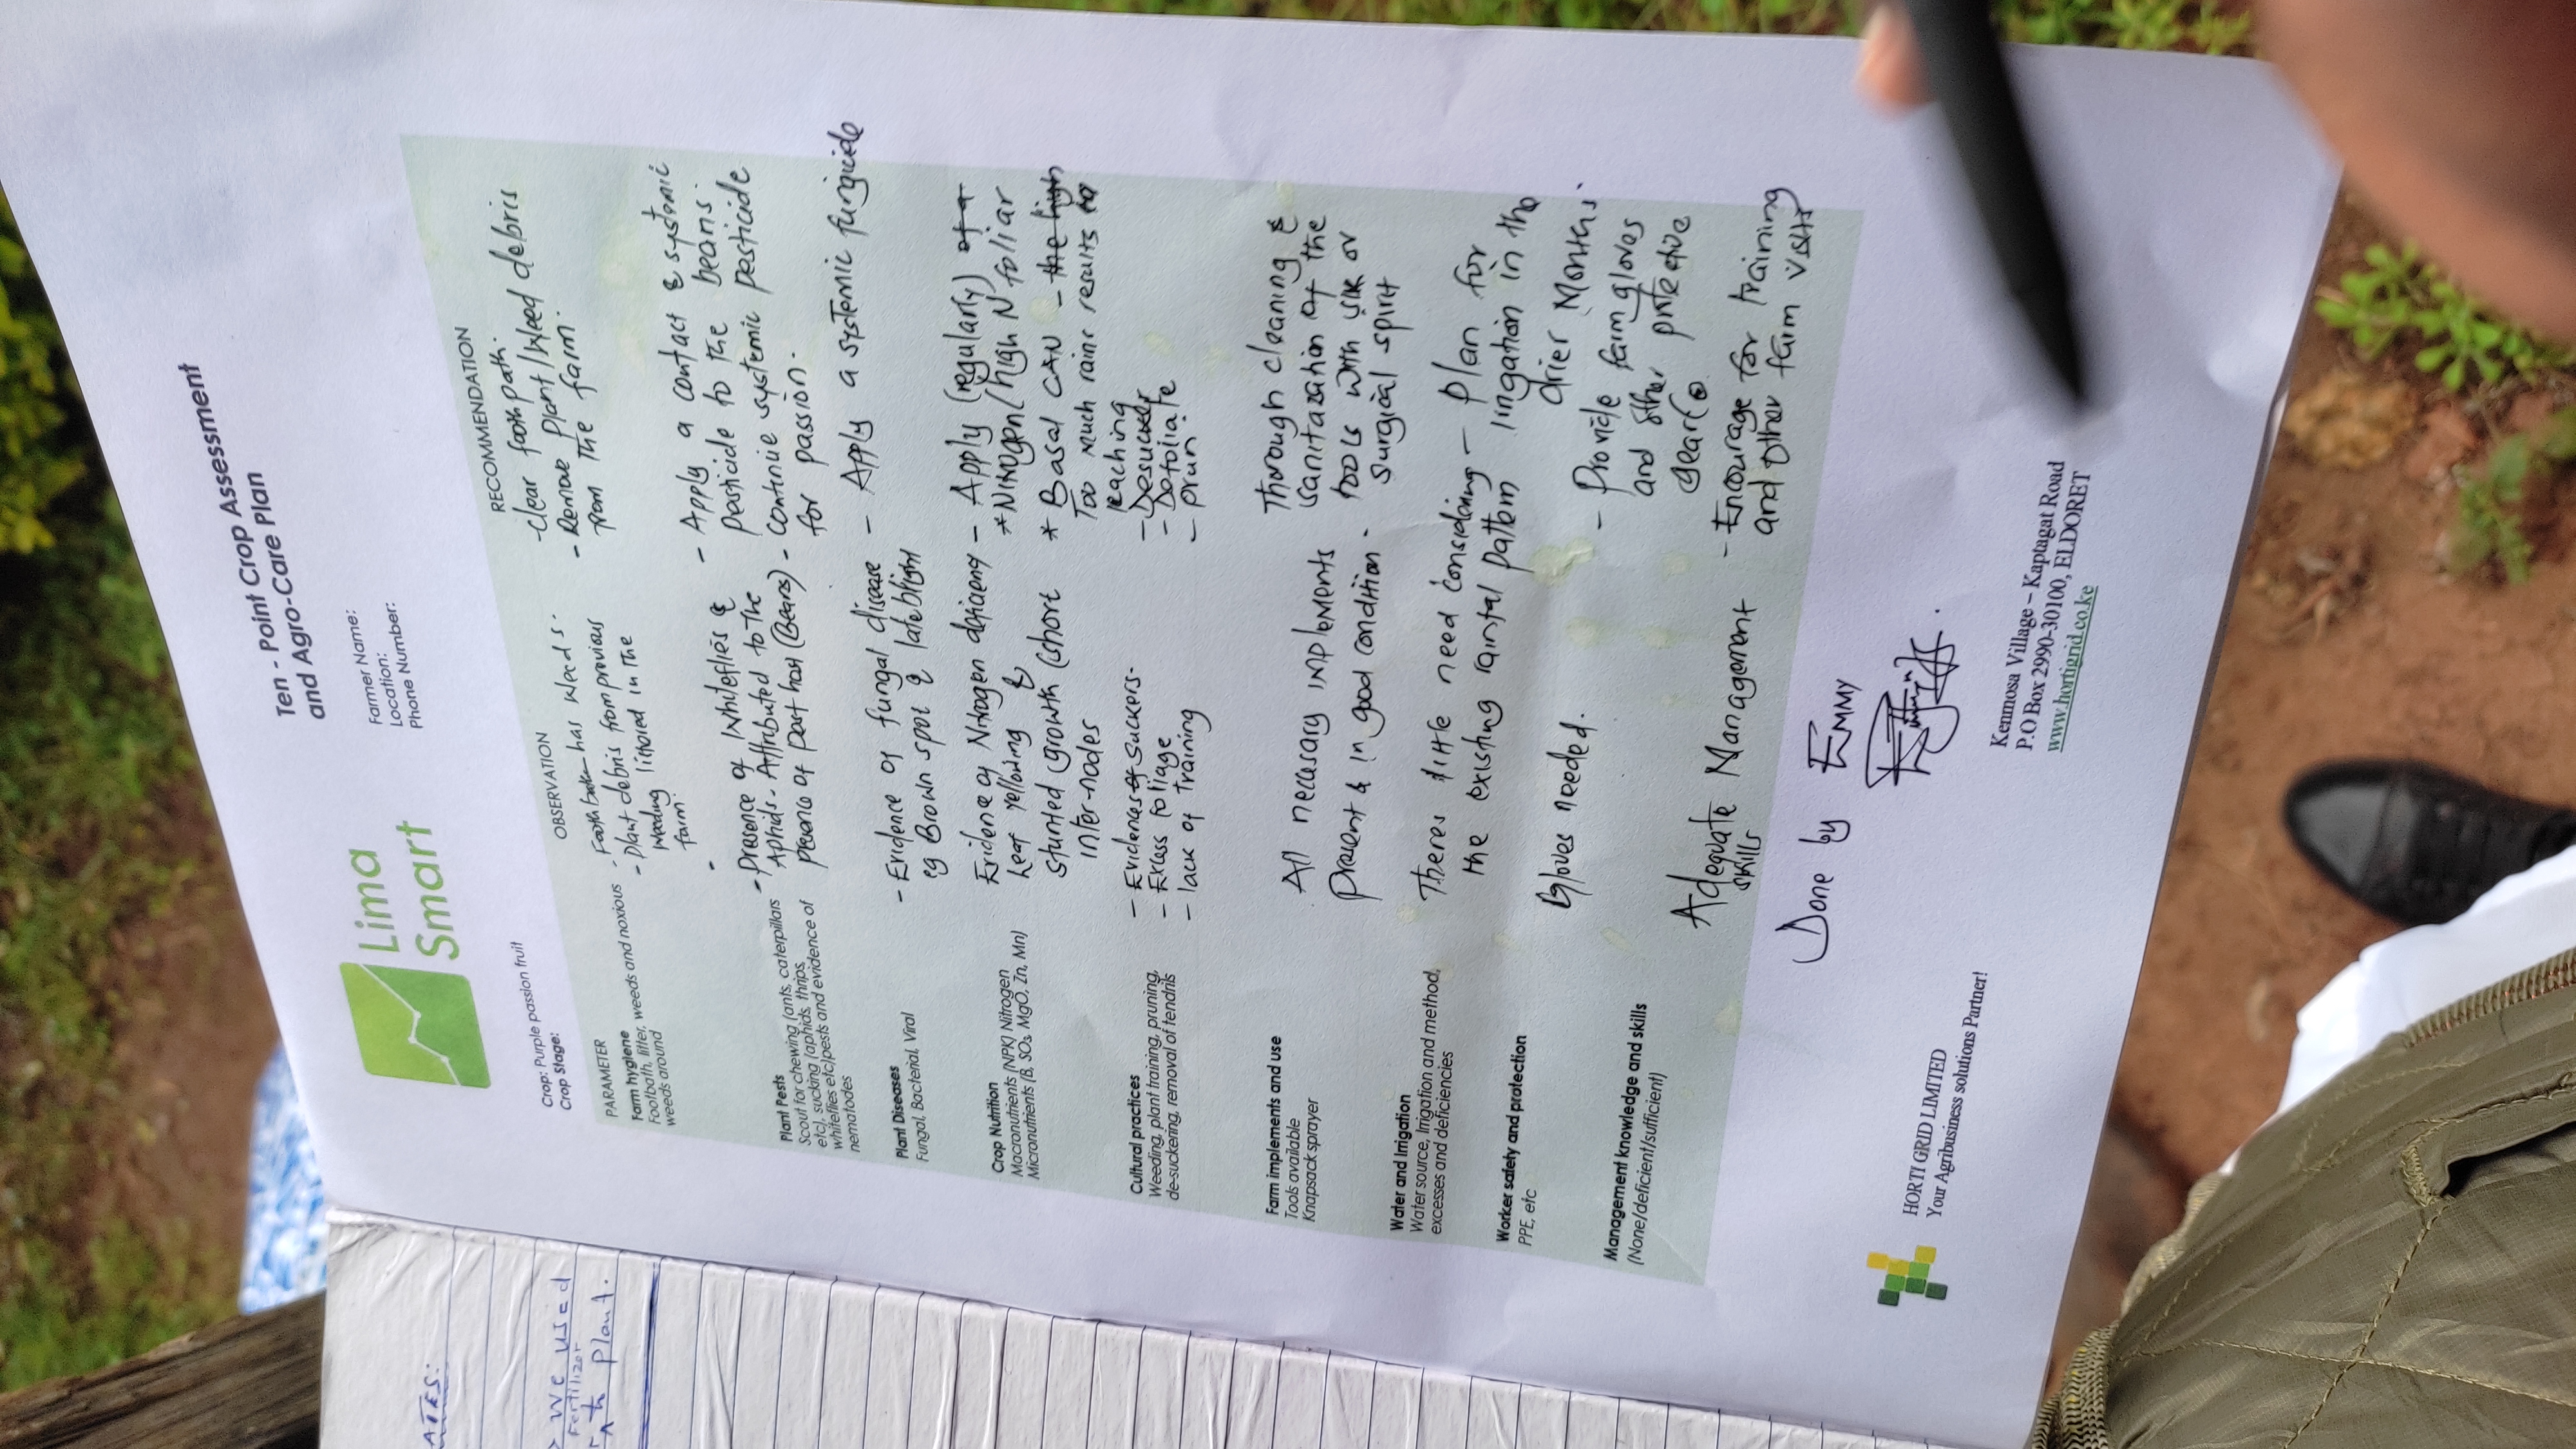 ATES:
> we used
Fertilizer
to plant.
Ten - Point Crop Assessment
and Agro-Care Plan
Lima
Smart
Farmer Name:
Location:
Phone Number:
Crop: Purple passion fruit
Crop Stage:
PARAMETER
OBSERVATION
RECOMMENDATION
Farm hygiene
Footbath, litter, weeds and noxious
weeds around
- Footh has weeds.
- Plant debris from previous
weeding littored in the
farm.
-
-clear footh path.
- Remove Plant/Weed debris
from the farm.
Plant Pests
Scout for chewing (ants, caterpillars
etc), sucking (aphids, thrips,
whiteflies etc)pests and evidence of
nematodes
- Presence of Whiteflies &
Aphids - Attributed to the
presence of past host (Beans)
- Apply a contact & systemic
pesticide to the beans.
- continue systemic pesticide
for passion.
Plant Diseases
Fungal, Bacterial, Viral
- Evidence of fungal disease
eg Brown spot & late blight
- Apply a systemic fungicide
Crop Nutrition
Macronutrients (NPK) Nitrogen
Micronutrients (B, SO₃, MgO, Zn, Mn)
Evidence of Nitrogen deficieny
Leaf Yellowing &
stunted growth (short
inter-nodes
- Apply (regularly) of a
*Nitrogen/high N foliar
* Basal CAN - the high
Too much rains results to
leaching
Cultural practices
Weeding, plant training, pruning,
de-suckering, removal of tendrils
- Evidences of suckers-
- Excess foliage
- lack of training
- Desucker
- Defoliate
- prun.
Farm implements and use
Tools available
Knapsack sprayer
All necesary implements
present & in good condition.
Thorough cleaning &
sanitazation of the
tools with or
surgical spirit
Water and Irrigation
Water source, Irrigation and method,
excesses and deficiencies
Theres little need considering
the existing rainfal pattern
- Plan for
irrigation in the
drier Months.
Worker safety and protection
PPE, etc
Gloves needed.
- Provide farm gloves
and other protective
gear
Management knowledge and skills
(None/deficient/sufficient)
Adequate Management
skills
- Encourage for training
and other farm visits
Done by EMMY
HORTI GRID LIMITED
Your Agribusiness solutions Partner!
Kenmosa Village – Kaptagat Road
P.O Box 2990-30100, ELDORET
www.hortigrid.co.ke